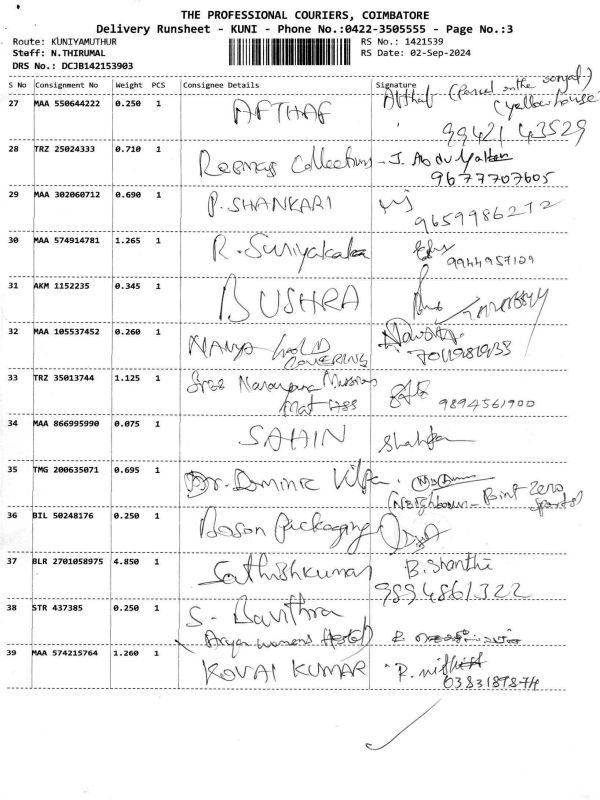 THE PROFESSIONAL COURIERS, COIMBATORE
Delivery Runsheet - KUNI - Phone No.:0422-3505555 - Page No.:3
Route: KUNIYAMUTHUR RS No.: 1421539
Staff: N.THIRUMAL RS Date: 02-Sep-2024
DRS No.: DCJB142153903
S No Consignment No Weight PCS Consignee Details Signature
27 MAA 550644222 0.250 1 AFTHAF Afthaf (Parcel on the
(yellow house
99421 43529
28 TRZ 25024333 0.710 1 Collections - J. Abdul
9677707605
29 MAA 302060712 0.690 1 P. SHANKARI
9659986272
30 MAA 574914781 1.265 1 R. Suriyakala
9944957129
31 AKM 1152235 0.345 1 BUSHRA
32 MAA 105537452 0.260 1 NANYA GOLD
COVERING
33 TRZ 35013744 1.125 1 Sree Narayana Mission
Mat Hss 9894561900
34 MAA 866995990 0.075 1 SAHIN
35 TMG 200635071 0.695 1 Dr. Dominic
(Neighbour - Bint Zero
36 BIL 50248176 0.250 1 Boson Packaging
37 BLR 2701058975 4.850 1 Sathishkumar B. Shanthi
9894861322
38 STR 437385 0.250 1 S. Bavithra
Aryan womens Hostel
39 MAA 574215764 1.260 1 KOVAI KUMAR R.